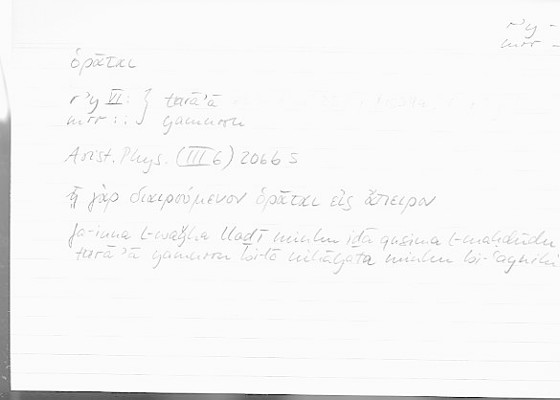 r'y –
mrr –
ὁρᾶται
r'y VI : } tarā'ā
mrr : : } yamurru
Arist. Phys. (III 6) 206b 5
ᾗ γὰρ διαιρούμενον ὁρᾶται εἰς ἄπειρον
fa-inna l-waǧha lladī minhu idā qusima l-maḥdūdu
tarā'ā yamurru bi-lā nihāyata minhu bi-'aynihi